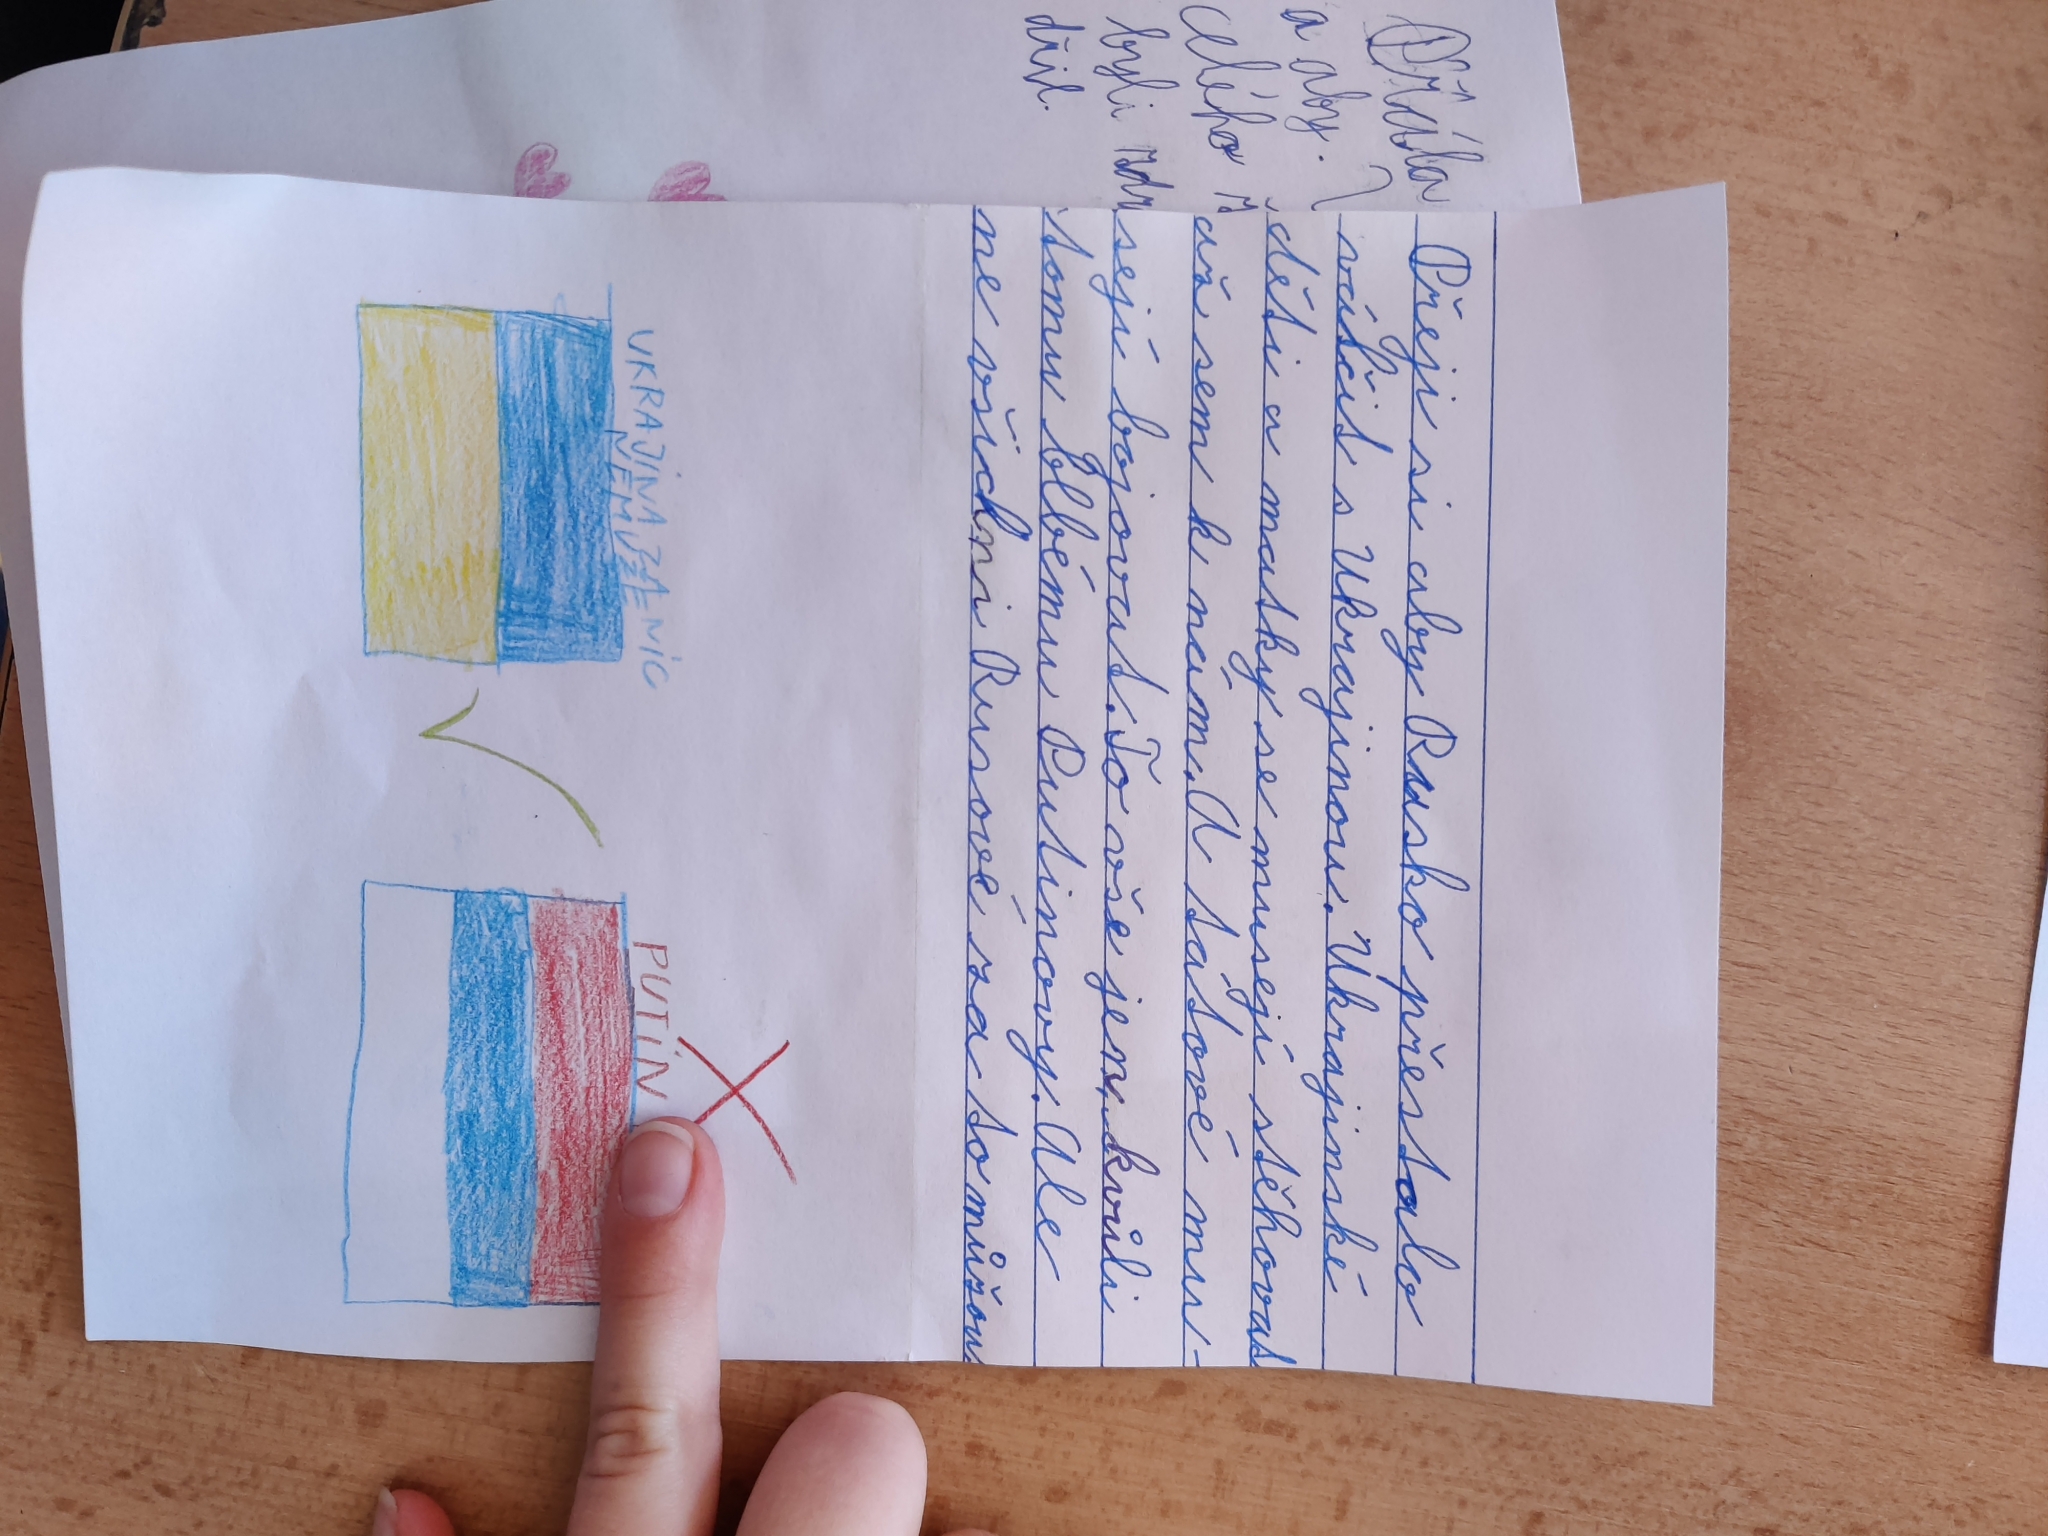 Přála
a aby
celého z
byli zdr
dřil.
Přeji si aby Rusko přestalo
válčit s Ukrajinou. Ukrajinské
děti a matky se musejí stěhovat
až sem k nám. A tátové mu-
sejí bojovat. To vše jen kvůli
tomu blbému Putinovy. Ale
ne všichni Rusové za to můžou
UKRAJINA ZA NIC
NEMUŽE
PUTIN